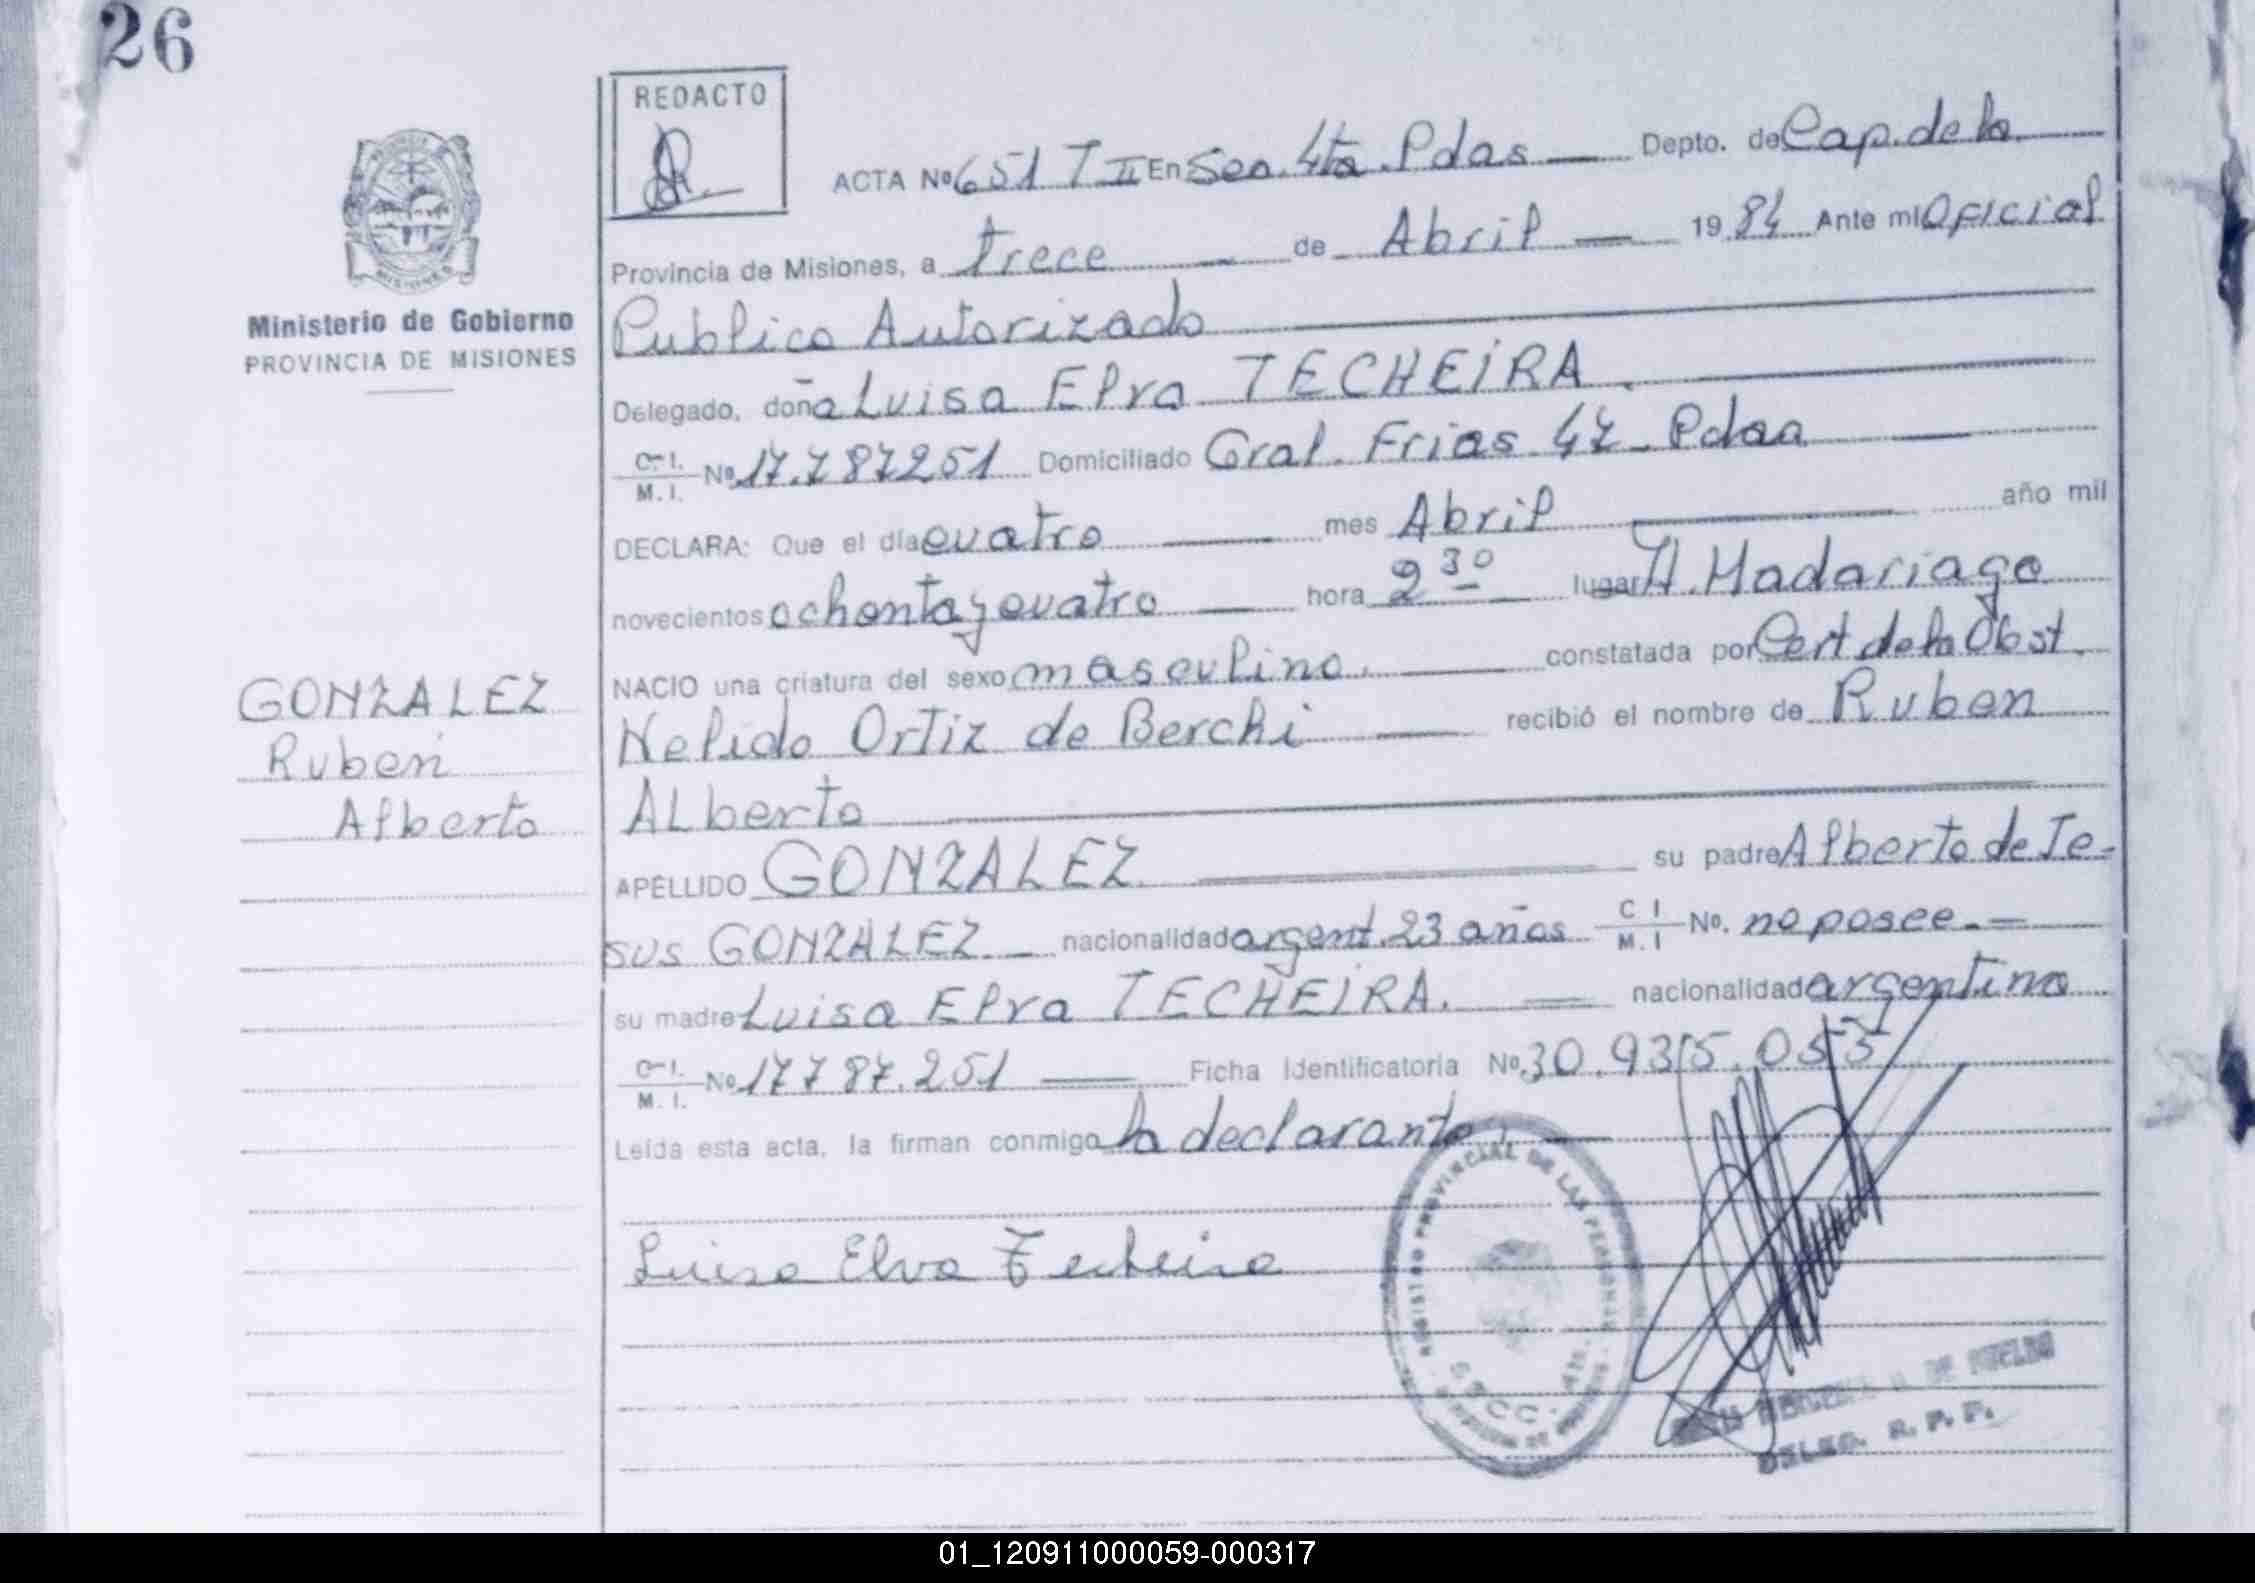 26
REDACTO
ACTA Nº 651 T II En Sec. 4ta. Pdas Depto. de Cap. de la
Provincia de Misiones, a trece de Abril 1984 Ante mi Oficial
Publico Autorizado
Ministerio de Gobierno
PROVINCIA DE MISIONES
Delegado, doña Luisa Elva TECHEIRA.
C.I. M.I. Nº 17.787251 Domiciliado Gral. Frias 47 - Pdas
DECLARA: Que el día cuatro mes Abril año mil
novecientos ochenta y cuatro hora 2 30 lugar H. Madariaga
NACIO una criatura del sexo masculino. constatada por Cert de la Obst.
GONZALEZ
Ruben
Alberto
Nelida Ortiz de Berchi recibió el nombre de Ruben
Alberto
APELLIDO GONZALEZ su padre Alberto de Je-
sus GONZALEZ. nacionalidad argent. 23 años C I M. I No. no posee.
su madre Luisa Elva TECHEIRA. nacionalidad argentina
C.I. M. I. Nº 17787.251 Ficha Identificatoria Nº 30.935.055
Leída esta acta, la firman conmigo la declarante.
Luisa Elva Techeira
REGISTRO PROVINCIAL DE LAS PERSONAS
DELEG. R. P. P.
01_120911000059-000317